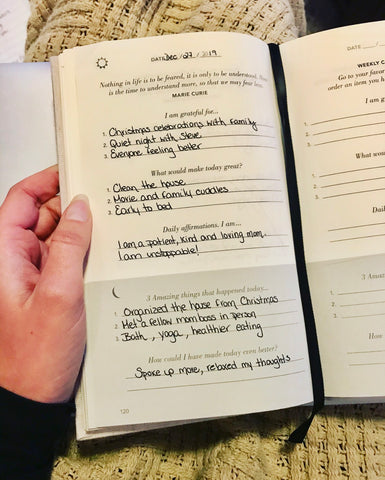 DATE Dec / 27 / 2019
Nothing in life is to be feared, it is only to be understood. Now
is the time to understand more, so that we may fear less.
MARIE CURIE
I am grateful for...
1. Christmas celebrations with family
2. Quiet night with Steve
3. Everyone feeling better
What would make today great?
1. Clean the house
2. Movie and family cuddles
3. Early to bed
Daily affirmations. I am...
I am a patient, kind and loving mom.
I am unstoppable!
3 Amazing things that happened today...
1. Organized the house from Christmas
2. Met a fellow mom boss in person
3. Bath, yoga, healthier eating
How could I have made today even better?
Spoke up more, relaxed my thoughts
120
DATE /
WEEKLY C
Go to your favor
order an item you h
I am g
1.
2.
3.
What wo
1.
2.
3.
Daily
3 Amaz
1.
2.
3.
How could I